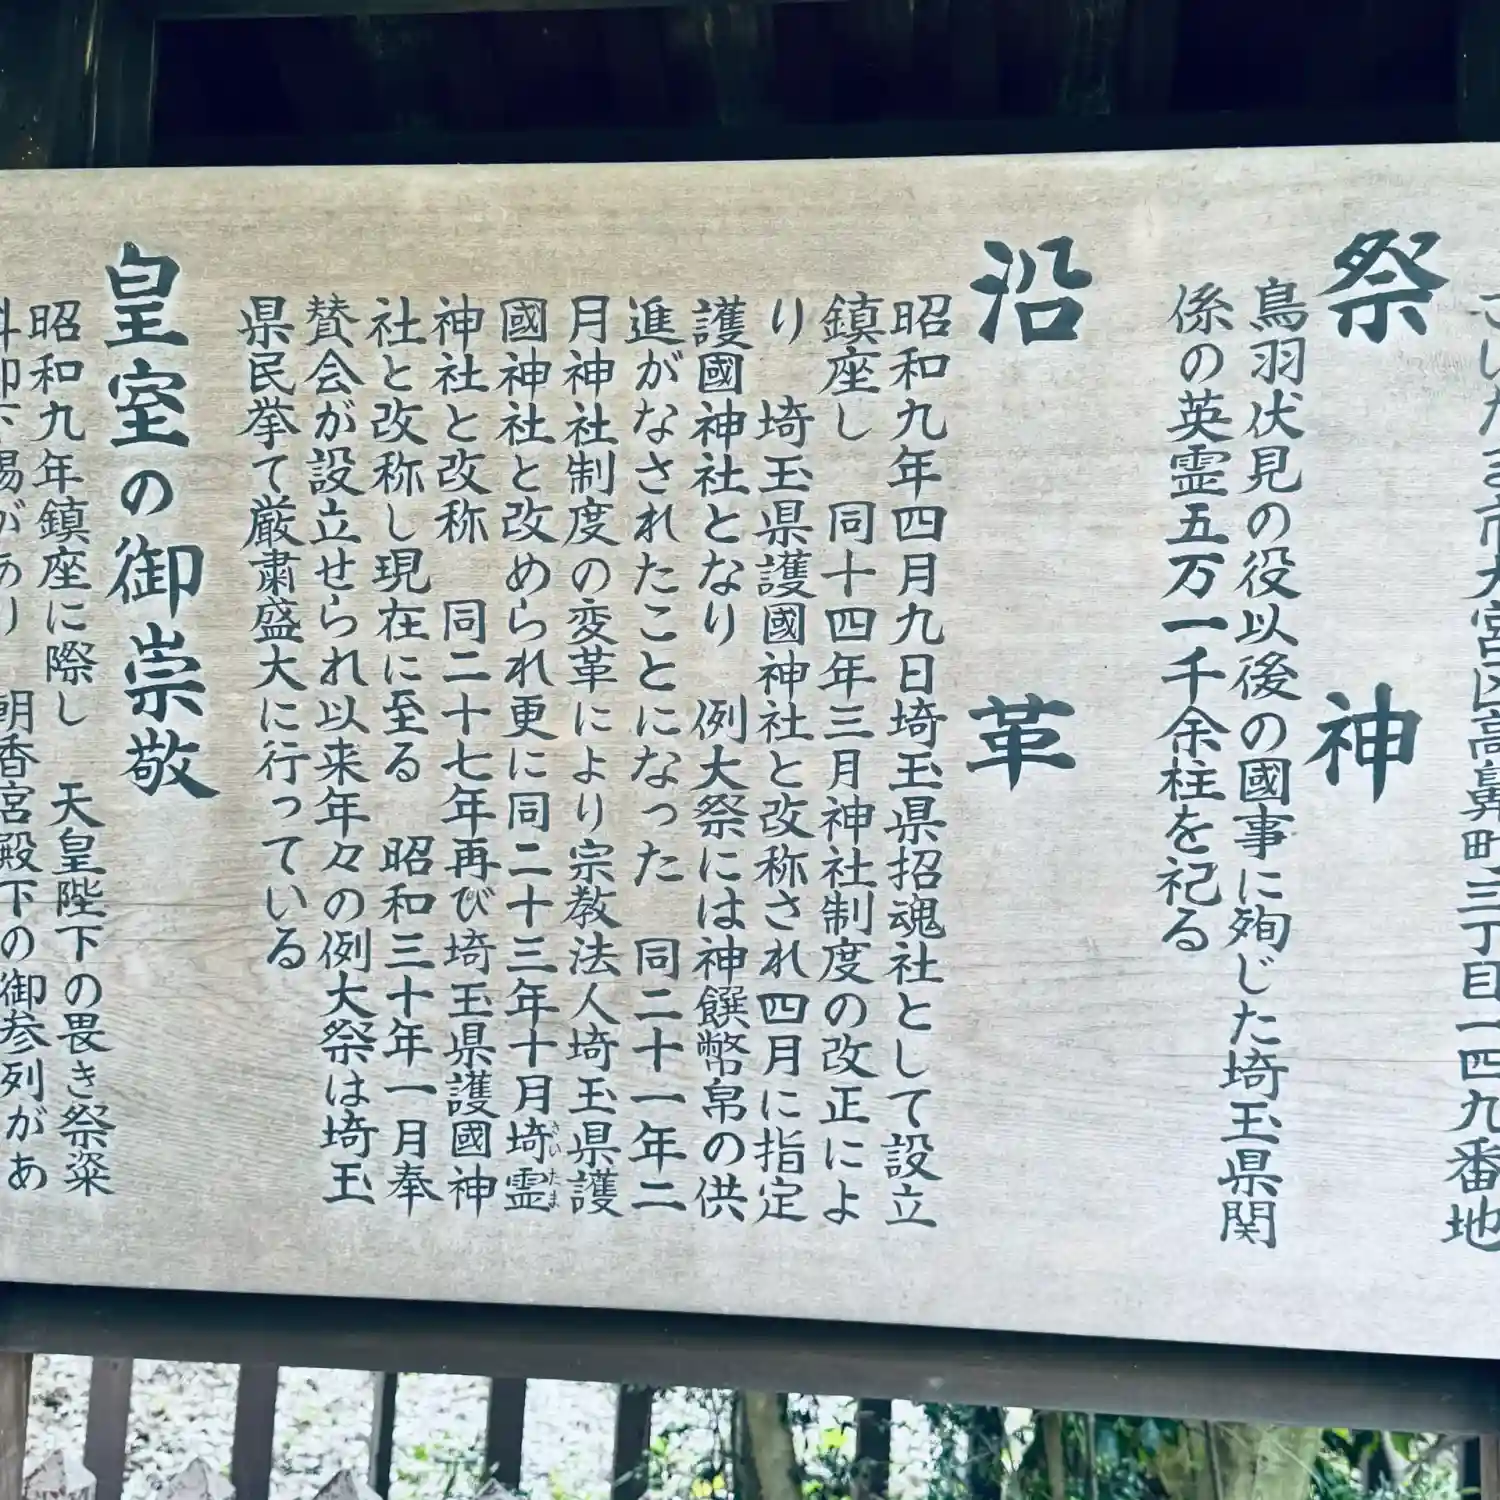 さいたま市大宮区高鼻町三丁目一四九番地
祭神
鳥羽伏見の役以後の國事に殉じた埼玉県関
係の英霊五万一千余柱を祀る
沿革
昭和九年四月九日埼玉県招魂社として設立
鎮座し 同十四年三月神社制度の改正によ
り 埼玉県護國神社と改称され四月に指定
護國神社となり 例大祭には神饌幣帛の供
進がなされたことになった 同二十一年二
月神社制度の変革により宗教法人埼玉県護
國神社と改められ更に同二十三年十月埼霊
さいたま
神社と改称 同二十七年再び埼玉県護國神
社と改称し現在に至る 昭和三十年一月奉
賛会が設立せられ以来年々の例大祭は埼玉
県民挙て厳粛盛大に行っている
皇室の御崇敬
昭和九年鎮座に際し 天皇陛下の畏き祭粢
料御下賜があり 朝香宮殿下の御参列があ